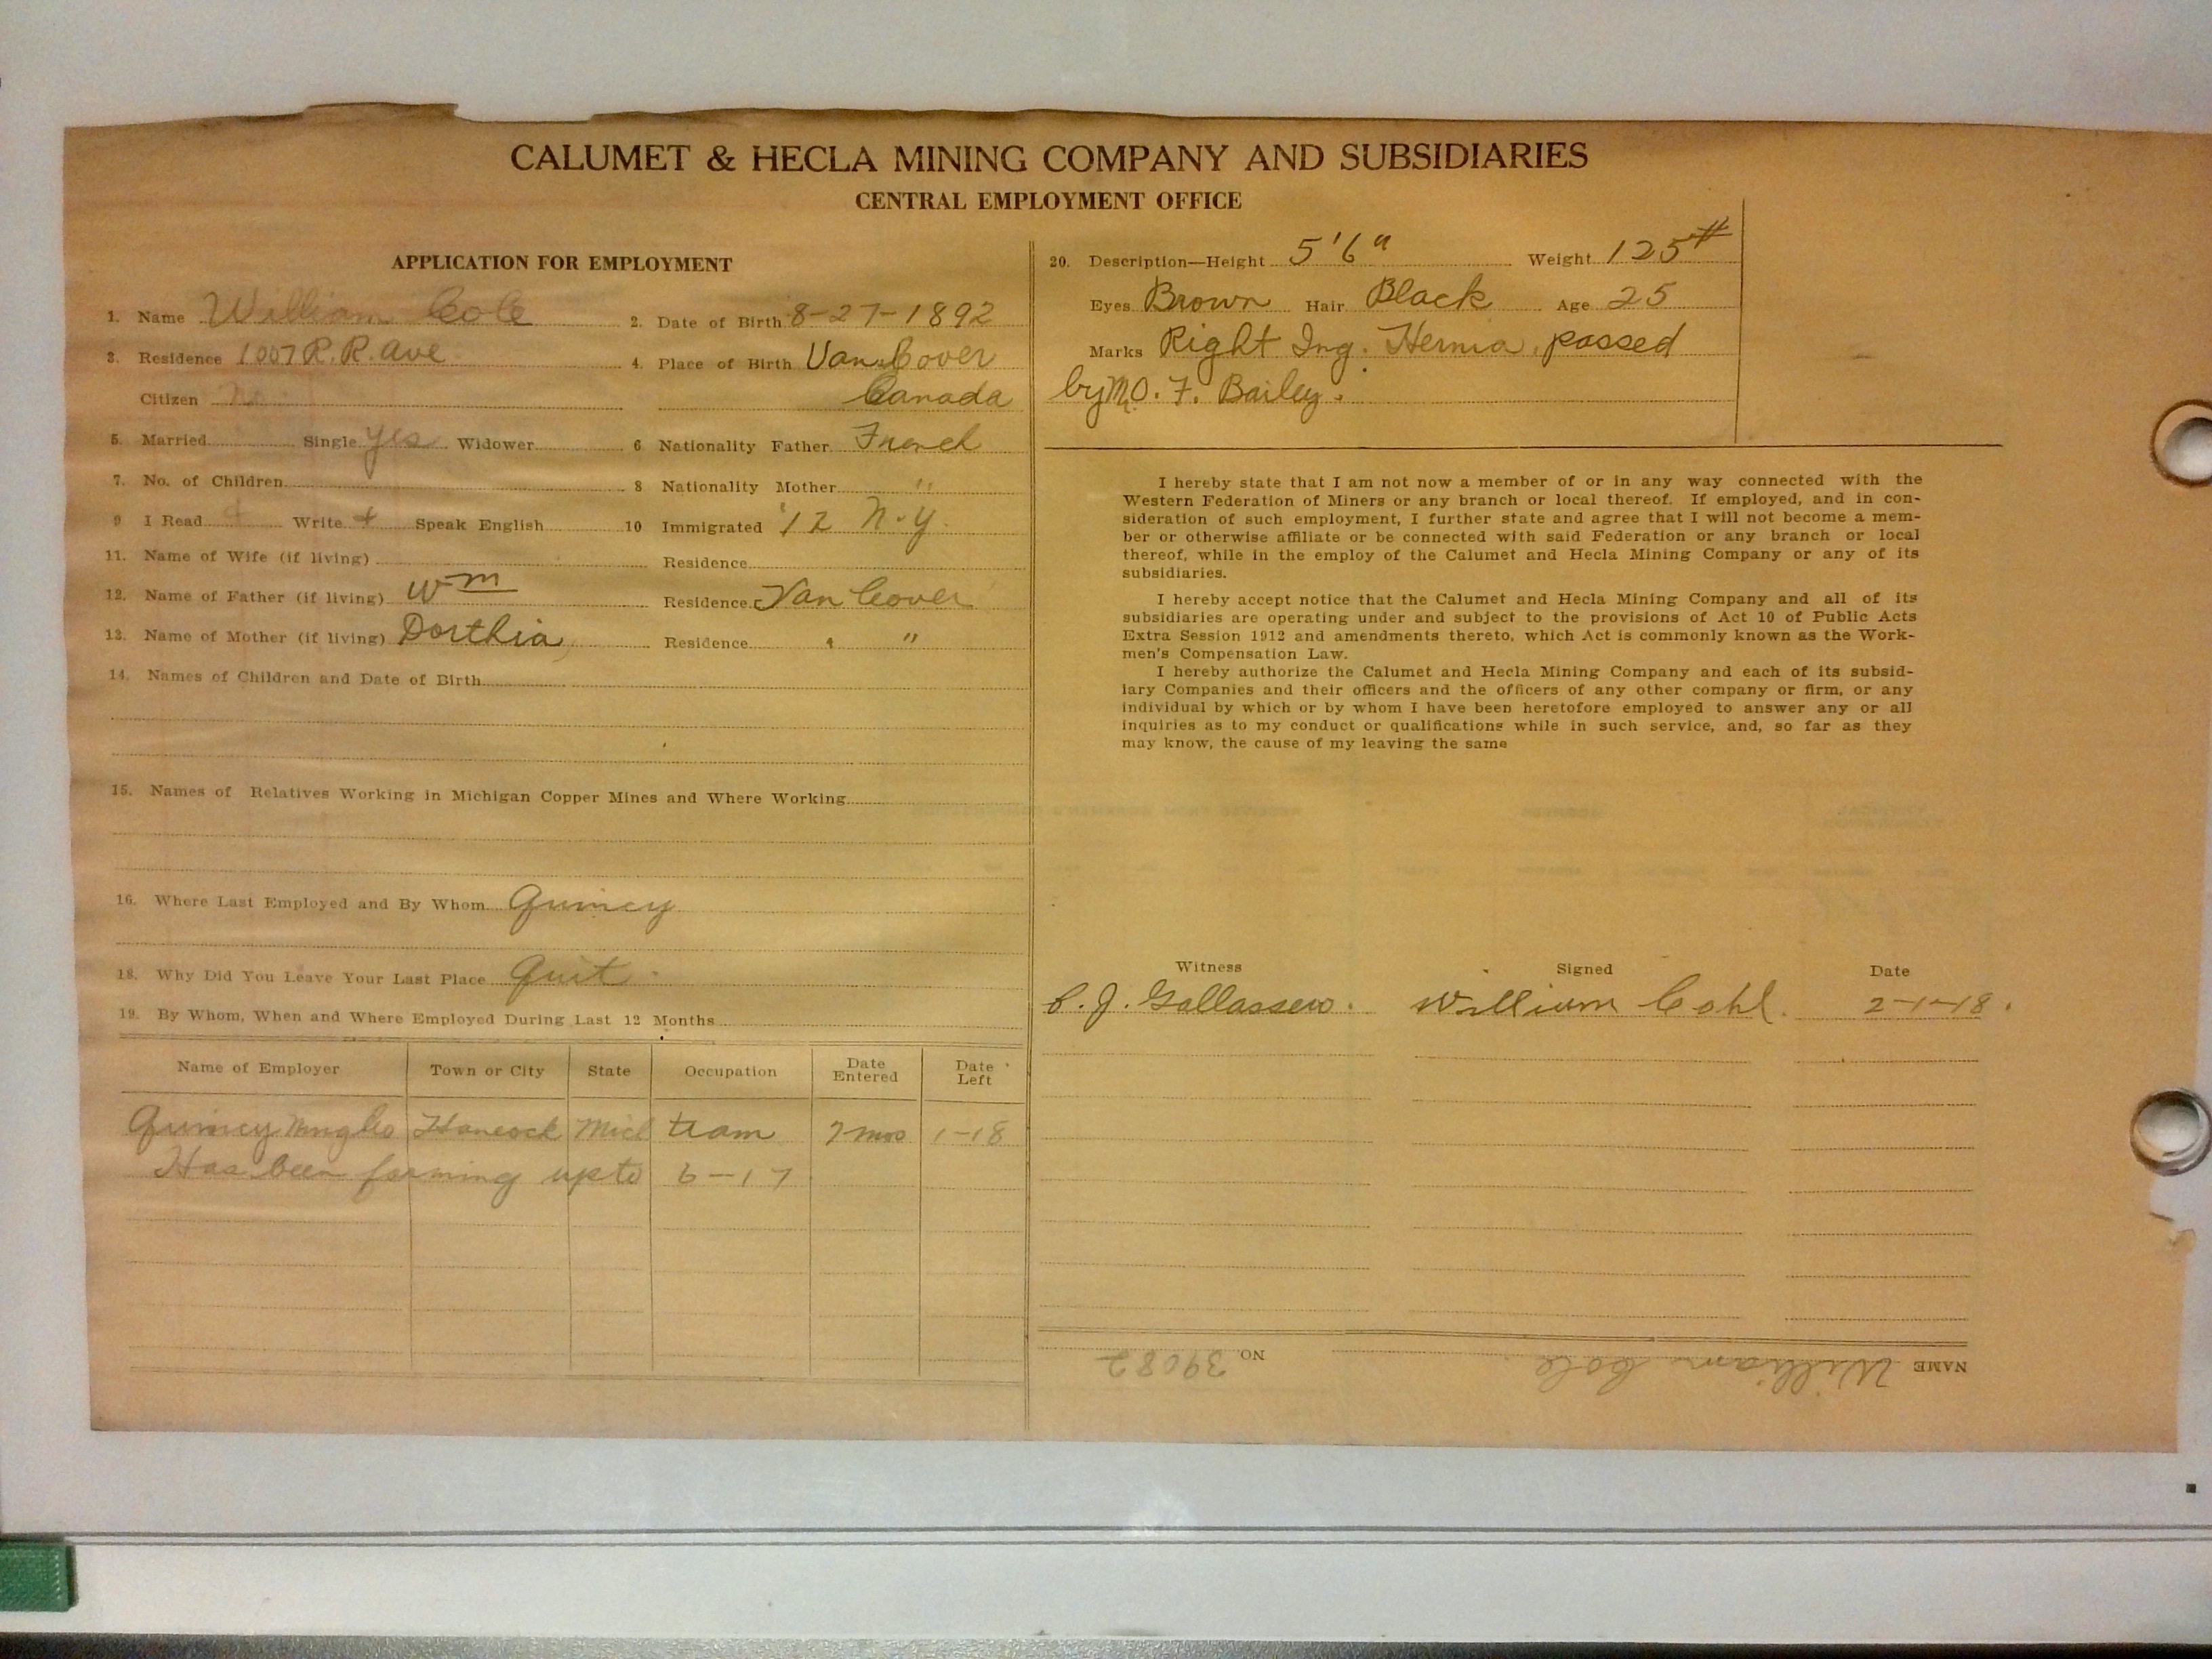 CALUMET & HECLA MINING COMPANY AND SUBSIDIARIES
CENTRAL EMPLOYMENT OFFICE
APPLICATION FOR EMPLOYMENT
1. Name William Cole 2. Date of Birth 8-27-1892
3. Residence 1007 R.R. Ave 4. Place of Birth Van Cover
Citizen No Canada
5. Married Single yes Widower 6 Nationality Father French
7. No. of Children 8 Nationality Mother "
9 I Read + Write + Speak English 10 Immigrated '12 N.Y.
11. Name of Wife (if living) Residence
12. Name of Father (if living) Wm Residence Van Cover
13. Name of Mother (if living) Dorthia Residence " "
14. Names of Children and Date of Birth
15. Names of Relatives Working in Michigan Copper Mines and Where Working
16. Where Last Employed and By Whom Quincy
18. Why Did You Leave Your Last Place Quit.
19. By Whom, When and Where Employed During Last 12 Months
Name of Employer Town or City State Occupation Date Entered Date Left
Quincy Hancock Mich tram 7 mos 1-18
Has been farming up to 6-17
20. Description—Height 5'6" Weight 125#
Eyes Brown Hair Black Age 25
Marks Right Ing. Hernia, passed
by F. Bailey.
I hereby state that I am not now a member of or in any way connected with the
Western Federation of Miners or any branch or local thereof. If employed, and in con-
sideration of such employment, I further state and agree that I will not become a mem-
ber or otherwise affiliate or be connected with said Federation or any branch or local
thereof, while in the employ of the Calumet and Hecla Mining Company or any of its
subsidiaries.
I hereby accept notice that the Calumet and Hecla Mining Company and all of its
subsidiaries are operating under and subject to the provisions of Act 10 of Public Acts
Extra Session 1912 and amendments thereto, which Act is commonly known as the Work-
men's Compensation Law.
I hereby authorize the Calumet and Hecla Mining Company and each of its subsid-
iary Companies and their officers and the officers of any other company or firm, or any
individual by which or by whom I have been heretofore employed to answer any or all
inquiries as to my conduct or qualifications while in such service, and, so far as they
may know, the cause of my leaving the same
Witness Signed Date
William Cohl. 2-1-18.
NAME William Cole NO. 39082